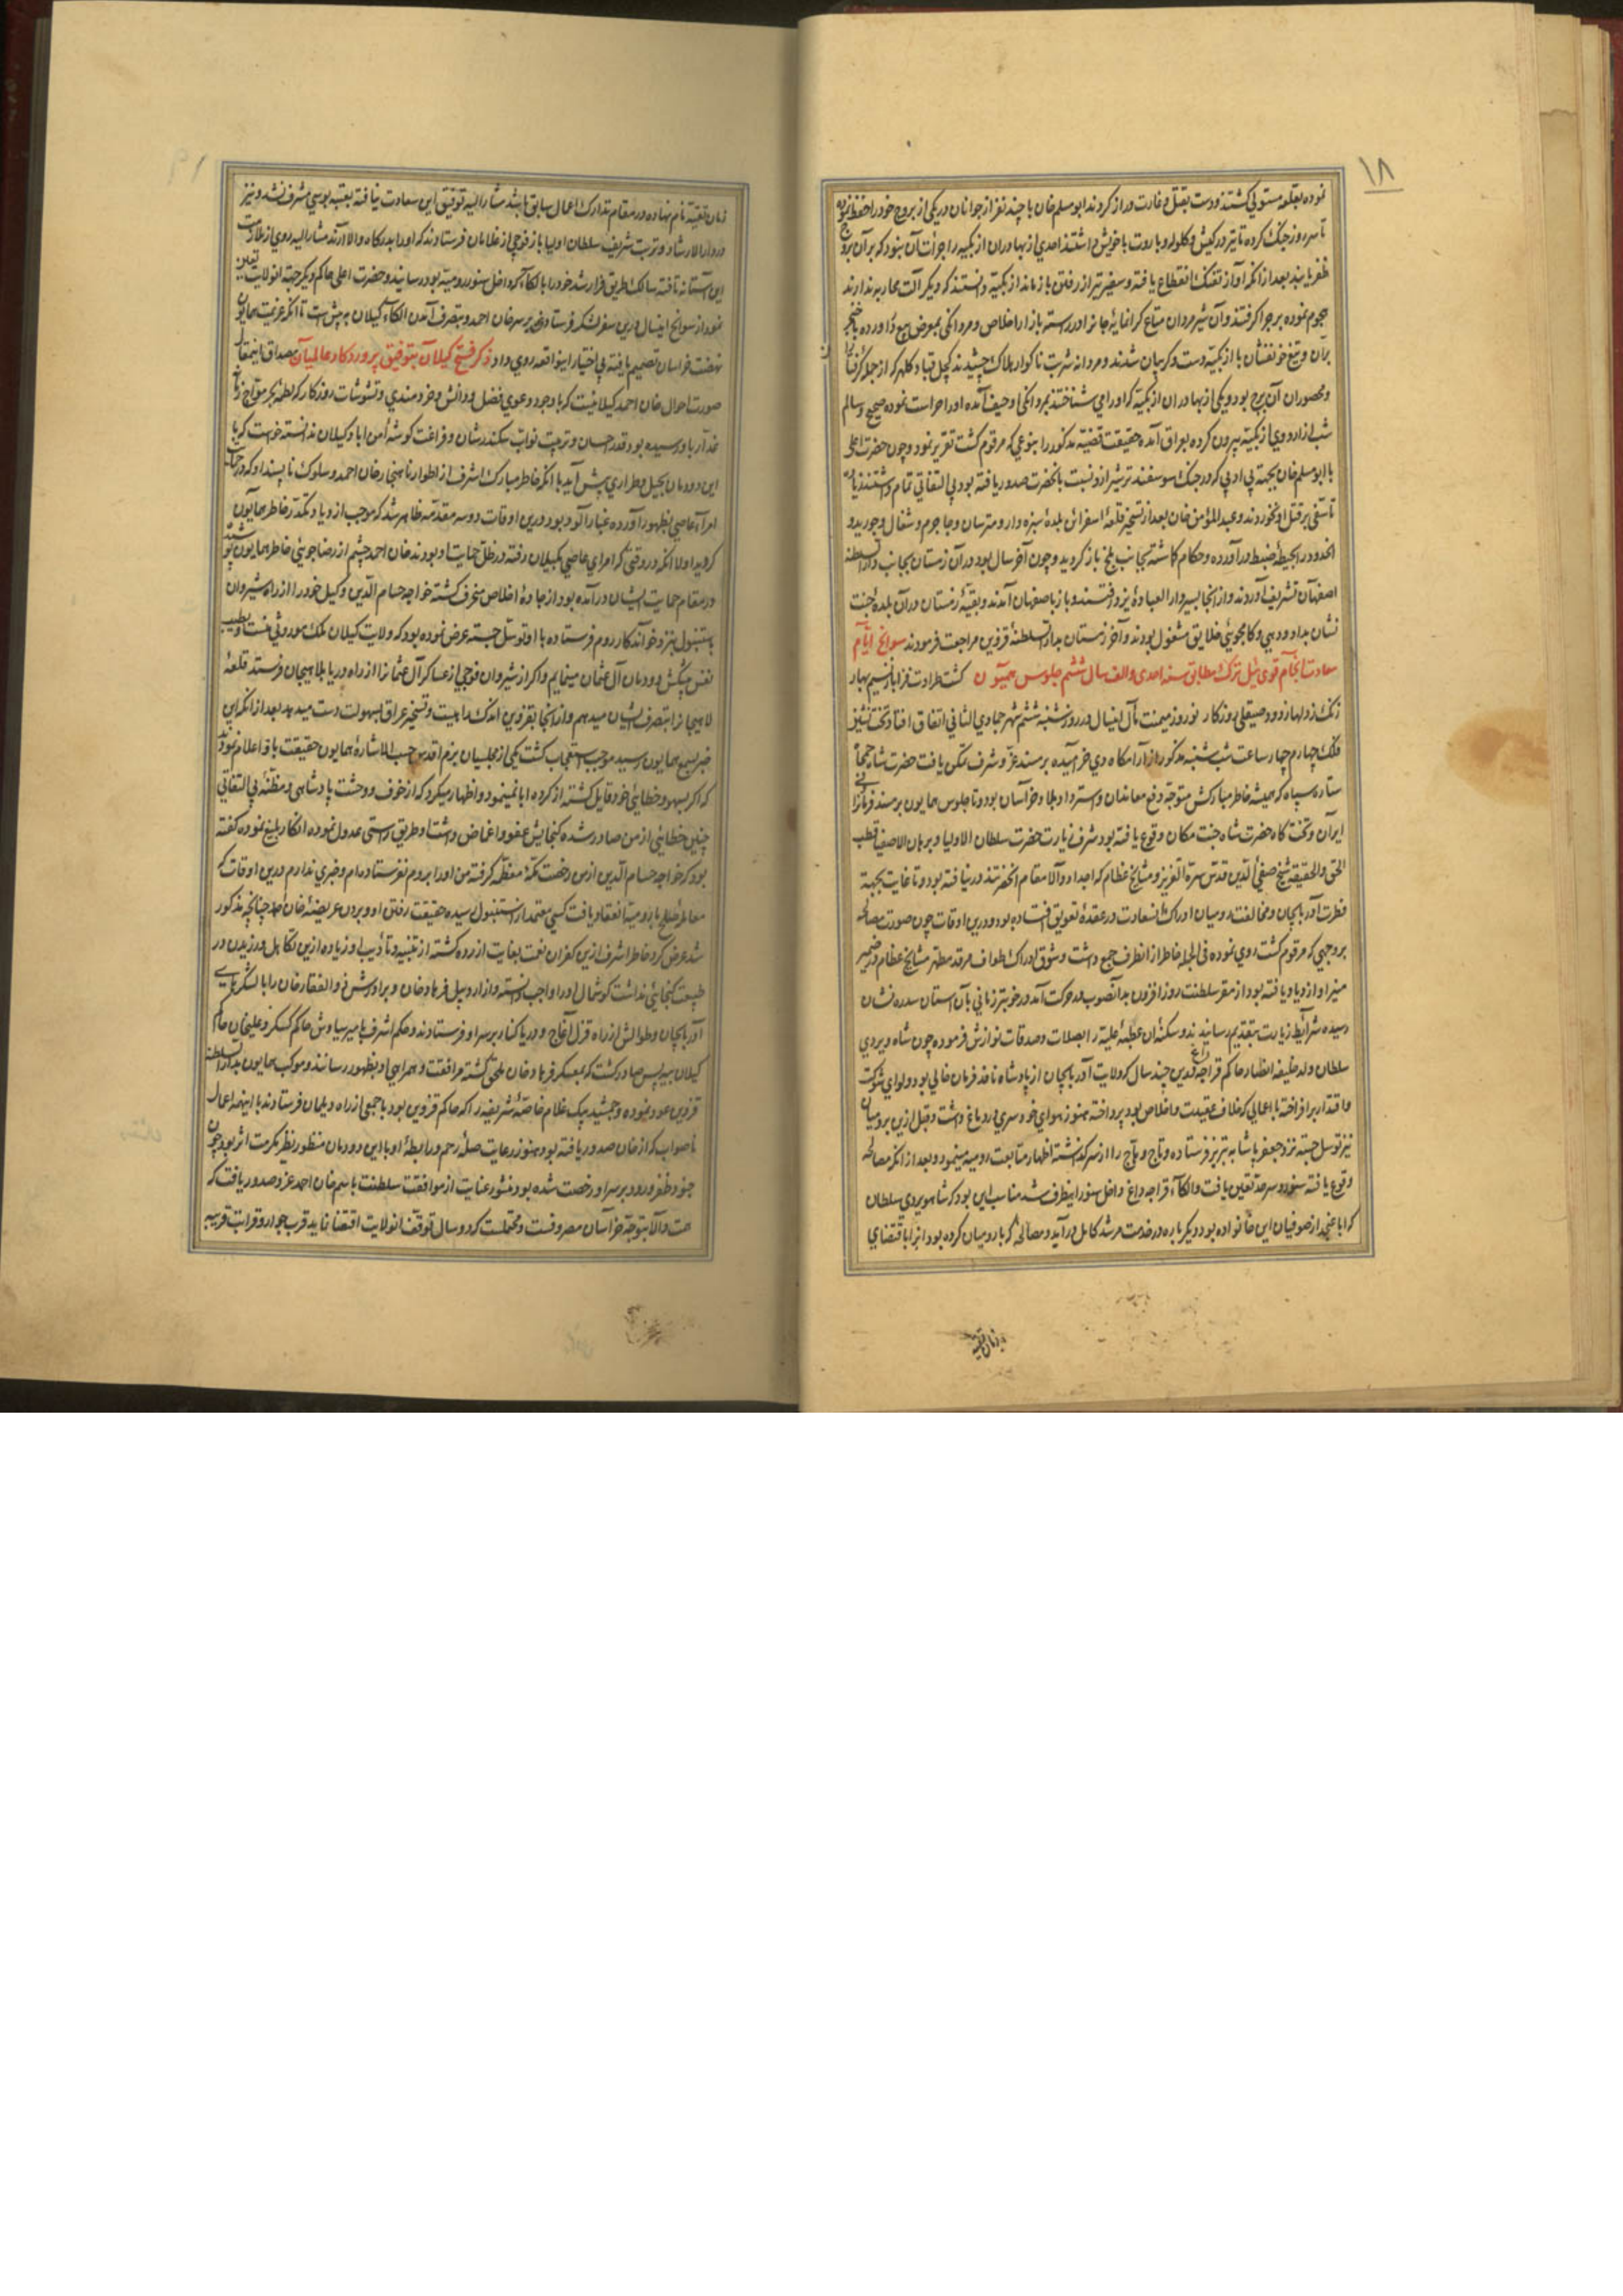 ۱۸
نموده بقلعه مستولی گشتند و دست بقتل و غارت دراز کردند ابومسلم خان با چند نفر از جوانان در یکی از بروج خود را حفظ نموده
تا سه روز جنگ کرده تا تیر در کیش و گلوله و باروت با خویش داشتند احدی از بهادران ازبکیه را جرأت آن نبود که بر آن برج
ظفر یابند بعد از آنکه آواز تفنک انقطاع یافته و سفیر تیر از رفتن باز ماند ازبکیه دانستند که دیگر آلت محاربه ندارند
هجوم نموده بر جدا گرفتند و آن شیر مردان متاع گرانمایهٔ جانرا در رسته بازار اخلاص و مردانکی بمعرض بیع در آورده با خنجر
بران و تیغ خونفشان با ازبکیه دست و گریبان شدند و مردانه شربت ناگوار هلاک چشیدند کچل قباد کلهر که از جمله گرفتاران
و محصوران آن برج بود و یکی از بهادران ازبکیه که او را می شناختند بمردانکی او حیف آمده او را حراست نموده صحیح و سالم
شب از اردوی ازبکیه بیرون کرده بعراق آمده حقیقت قضیه مذکور را بنوعی که مرقوم گشت تقریر نمود و چون حضرت اعلی
با ابومسلم خان بجهته بی ادبی که در جنک سوسفند ترشیز ازو نسبت بانحضرت صدور یافته بود بی التفاتی تمام داشتند زیاده
تأسفی بر قتل او نخوردند و عبدالمؤمن خان بعد از تسخیر قلعهٔ اسفراین بلدهٔ سبزه وار و مزینان و جاجرم و شغان و جوربد و
انحدود را بحیطهٔ ضبط در آورده و حکام گماشته بجانب بلخ باز گردید و چون آخر سال بود در آن زمستان بجانب دار السلطنه
اصفهان تشریف آوردند و از انجا بسیر دار العباده یزد رفتند و باز باصفهان آمدند و بقیهٔ زمستان در آن بلدهٔ جنت
نشان بداد و دهی و کامجویی خلایق مشغول بودند و آخر زمستان بدار السلطنهٔ قزوین مراجعت فرمودند سوانح ایام
سعادت انجام قوی ئیل ترک مطابق سنه احدی و الف سال ششم جلوس همیون گشت طراوت فزا باز نسیم بهار
زنک زدلها زدود صیقلی روزکار نوروز میمنت مآل اینسال در روز شنبه ششم شهر جمادی الثانی اتفاق افتاد تخت نشین
فلک چهارم چهار ساعت شب شنبه مذکور از آرامکاه دی خرامیده بر مسند عز و شرف تمکن یافت حضرت شاه جمجاه
ستاره سپاه که همیشه خاطر مبارکش متوجه دفع معاندان و استرداد بلاد خراسان بود و تا جلوس همایون بر مسند فرمانروائی
ایران و تخت گاه حضرت شاه جنت مکان وقوع یافته بود شرف زیارت حضرت سلطان الاولیا و برهان الاصفیا قطب
الحق و الحقیقه شیخ صفی الدین قدس سره العزیز و مشایخ عظام که اجداد والا مقام انحضرتند در نیافته بود و تا غایت بجهته
فطرت آذربایجان و مخالفت رومیان ادراک انسعادت در عقدهٔ تعویق افتاده بود و درین اوقات چون صورت مصالحه
بروجهی که مرقوم گشت روی نموده فی الجمله خاطر از انطرف جمع داشت و شوق ادراک طواف مرقد مطهر مشایخ عظام در ضمیر
منیر او ازدیاد یافته بود از مقر سلطنت روز افزون بدانصوب در حرکت آمد در خوبتر زمانی بآن استان سدره نشان
رسیده شرایط زیارت بتقدیم رسانیدند و سکنهٔ ان عطبهٔ علیه را بصلات و صدقات نوازش فرموده چون شاه ویردی
سلطان ولد خلیفه انصار حاکم قراجه داغ درین چند سال که ولایت آذربایجان از پادشاه نافذ فرمان خالی بود و لوای شوکت
و اقتدار بر افراخته با اعمالی که خلاف عقیدت و اخلاص بود پرداخته هنوز هوای خودسری در دماغ داشت و قبل ازین برومیان
نیز توسل جسته نزد جعفر پاشا به تبریز فرستاده و تاج و هاج را از سر گذاشته اظهار متابعت رومیه مینمود و بعد از آنکه مصالحه
وقوع یافته سنور و سرحد تعین یافت و الکاء قراجه داغ داخل سنور اینطرف شد مناسب این بود که شاهویردی سلطان
که اباً عنجد از صوفیان این خانواده بود دیگر باره در خدمت مرشد کامل در آید و مصالحهٔ که با رومیان کرده بود انرا باقتضای
بزمان تقیه
۱۹
زمان تقیه نام نهاده در مقام تدارک اعمال سابق باشد مشار الیه توفیق این سعادت نیافته بعتبه بوسی مشرف نشد و نیز
در دار الارشاد و تربت شریف سلطان اولیا باز فوجی از غلامان فرستادند که او را بدرکاه والا آرند مشار الیه روی از ملازمت
این آستانه تافته سالک طریق فرار شد خود را بالکاء که داخل سنور رومیه بود رسانید و حضرت اعلی حاکم دیگر جهته انولایت تعین
نمود از سوانح اینسال درین سفر لشکر فرستادند بر سر خان احمد و بتصرف آمدن الکاء گیلان به پیش است تا آنکه عزیمت همایون
نهضت خراسان تصمیم یافته بی اختیار اینواقعه روی داد ذکر فتح گیلان بتوفیق پروردکار عالمیان مصداق اینمقال
صورت احوال خان احمد گیلانیست که با وجود دعوی فضل و دانش و خردمندی و تشوشات روزکار که لطمهٔ بحر مواج زمانه
غدار باو رسیده بود قدر احسان و تربیت نواب سکندر شان و فراغت گوشهٔ امن اباد گیلان ندانسته خواست که با
این دودمان بحیل و طراری پیش آید با آنکه خاطر مبارک اشرف از اطوار ناهنجار خان احمد و سلوک ناپسند او که در حمایت
امراء عاصی بظهور آورده غبار آلود بود و درین اوقات دو سه مقدمه ظاهر شد که موجب ازدیاد تکدر خاطر همایون
گردید اولا آنکه در وقتی که امرای عاصی بکیلان رفته در ظل حمایت او بودند خان احمد چشم از رضاجوئی خاطر همایون پوشیده
در مقام حمایت ایشان در آمده بود از جادهٔ اخلاص منحرف گشته خواجه حسام الدین وکیل خود را از راه شیروان
باستنبول بنزد خواندکار روم فرستاده باو توسل جسته عرض نموده بود که ولایت کیلان ملک موروثی منست و بطیب
نفس پیشکش دودمان آل عثمان مینمایم و اکر از شیروان فوجی از عساکر آل عثمانرا از راه دریا بلاهیجان فرستد قلعهٔ
لاهیجانرا بتصرف ایشان میدهم و از انجا بقزوین اندک راهیست و تسخیر عراق بسهولت دست میدهد بعد از آنکه این
خبر بسمع همایون رسید موجب استعجاب گشت یکی از مجلسیان بزم اقدس حسب الاشارهٔ همایون حقیقت باو اعلام نمود
که اکر بسهو و خطائی خود قایل گشته از کرده ابا نمینمود و اظهار میکرد که از خوف و وحشت پادشاهی و مظنهٔ بی التفاتی
چنین خطائی از من صادر شده کنجایش عفو و اغماض داشت او طریق راستی عدول نموده انکار بلیغ نموده گفته
بود که خواجه حسام الدین از من رخصت مکهٔ معظمه گرفته من او را بروم نفرستاده ام و خبری ندارم درین اوقات که
معامله صلح با رومیه انعقاد یافت کسی معتمد از استنبول رسیده حقیقت رفتن او و بردن عریضهٔ خان احمد چنانچه مذکور
شد عرض کرد خاطر اشرف ازین کفران نعمت بغایت ازرده گشته از تنبیه و تأدیب او زیاده ازین تکاهل ورزیدن در
طبیعت کنجایی نداشت گوشمال او را واجب دانسته و از اردبیل فرهاد خان و برادرش ذوالفقار خان را با لشکرهای
آذربایجان و طوالش از راه قزل آغاج و دریا کنار بر سر او فرستادند و حکم اشرف بامیر سیاوش حاکم گسکر و علیخان حاکم
گیلان بیه پس صادر گشت که بمعسکر فرهاد خان ملحق گشته مرافقت و همراهی او بظهور رسانند و موکب همایون بدار السلطنه
قزوین عود نموده و جمشید بیک غلام خاصهٔ شریفه را که حاکم قزوین بود با جمعی از راه دیلمان فرستادند با اینهمه اعمال
ناصواب که از خان صدور یافته بود هنوز رعایت صلهٔ رحم و رابطهٔ او با این دودمان منظور نظر مکرمت اثر بود چون
جنود ظفر ورود بر سر او رخصت شده بود منشور عنایت از موافقت سلطنت باسم خان احمد عز صدور یافت که
همت والا بتوجه خراسان مصروفست و محتملست که دو سال توقف انولایت اقتضا نماید قرب جوار و قرابت قریبه